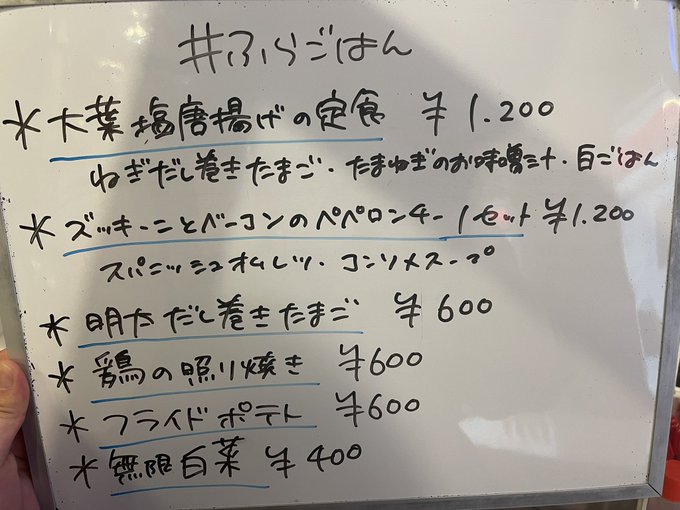 #ふらごはん
* 大葉塩唐揚げの定食 ¥1.200
ねぎだし巻きたまご・たまねぎのお味噌汁・白ごはん
* ズッキーニとベーコンのペペロンチー 1セット ¥1.200
スパニッシュオムレツ・コンソメスープ
* 明太だし巻きたまご ¥600
* 鶏の照り焼き ¥600
* フライドポテト ¥600
* 無限白菜 ¥400